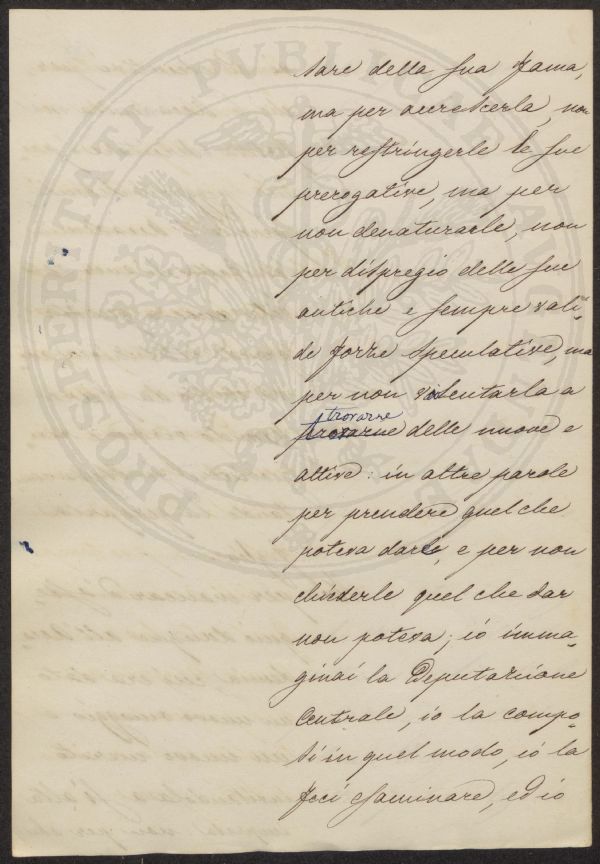 tare della sua fama,
ma per accrescerla, non
per restringerle le sue
prerogative, ma per
non denaturarle, non
per dispregio delle sue
antiche e sempre vali-
de forze speculative, ma
per non violentarla a
trovarne
delle nuove e
attive: in altre parole
per prendere quel che
poteva darle, e per non
chiederle quel che dar
non poteva; io imma-
ginai la Deputazione
Centrale, io la compo-
si in quel modo, io la
feci esaminare, ed io
PROSPERITATI PVBLICAE